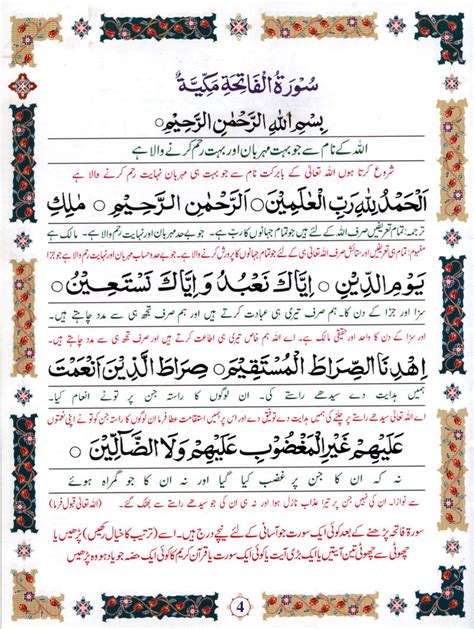 سُوْرَةُ الْفَاتِحَةِ مَكِّيَّةٌ
بِسْمِ اللهِ الرَّحْمٰنِ الرَّحِيْمِ ○
اللہ کے نام سے جو بہت مہربان اور بہت رحم کرنے والا ہے
شروع کرتا ہوں اللہ تعالٰی کے بابرکت نام سے جو بہت ہی مہربان نہایت رحم کرنے والا ہے
اَلْحَمْدُ لِلّٰهِ رَبِّ الْعٰلَمِيْنَ ○ اَلرَّحْمٰنِ الرَّحِيْمِ ○ مٰلِكِ
ترجمہ: تمام تعریفیں صرف اللہ کے لئے ہیں جو تمام جہانوں کا رب ہے۔ جو بے حد مہربان اور نہایت رحم والا ہے۔ مالک ہے
مفہوم: تمام ہی تعریفیں اور ستائش صرف اللہ تعالٰی ہی کے لئے ہیں جو تمام جہانوں کا پرورش کرنے والا ہے۔ جو بے حد و حساب مہربان اور نہایت ہی رحم والا ہے۔ جو جزا
يَوْمِ الدِّيْنِ ○ اِيَّاكَ نَعْبُدُ وَ اِيَّاكَ نَسْتَعِيْنُ ○
اور جزا کے دن کا۔ ہم صرف تیری ہی عبادت کرتے ہیں اور ہم صرف تجھ ہی سے مدد چاہتے ہیں۔
اور سزا کے دن کا واحد اور حقیقی مالک ہے۔ اے اللہ ہم خاص تیری ہی اطاعت کرتے ہیں۔ اور صرف تجھ ہی سے مدد چاہتے ہیں۔
اِهْدِنَا الصِّرَاطَ الْمُسْتَقِيْمَ ○ صِرَاطَ الَّذِيْنَ اَنْعَمْتَ
ہمیں ہدایت دے سیدھے راستے کی۔ ان لوگوں کا راستہ جن پر تو نے انعام کیا۔
اے اللہ تعالٰی سیدھے راستے پر چلنے کی ہمیں ہدایت دے توفیق دے اور اس پر ہمیں استقامت عطا فرما ان لوگوں کا راستہ جن کو تو نے اپنی نعمتوں
عَلَيْهِمْ غَيْرِ الْمَغْضُوْبِ عَلَيْهِمْ وَلَا الضَّآلِّيْنَ ○
نہ کہ ان کا جن پر غضب کیا گیا اور نہ ان کا جو گمراہ ہوئے
سے نوازا۔ ان کی نہیں جن پر تیرا عذاب نازل ہوا اور نہ ہی ان کی جو سیدھے راستے سے بھٹک گئے۔ (اللہ تعالٰی قبول فرما)
سورۃ فاتحہ پڑھنے کے بعد کوئی ایک سورت جو آسانی کے لئے نیچے درج ہیں۔ اسے (ترتیب کا خیال رکھیں) پڑھیں یا
چھوٹی سے چھوٹی تین آیتیں یا ایک بڑی آیت یا کوئی ایک سورت یا قرآن کریم کا کوئی ایک حصہ جو یاد ہو وہ پڑھیں
4